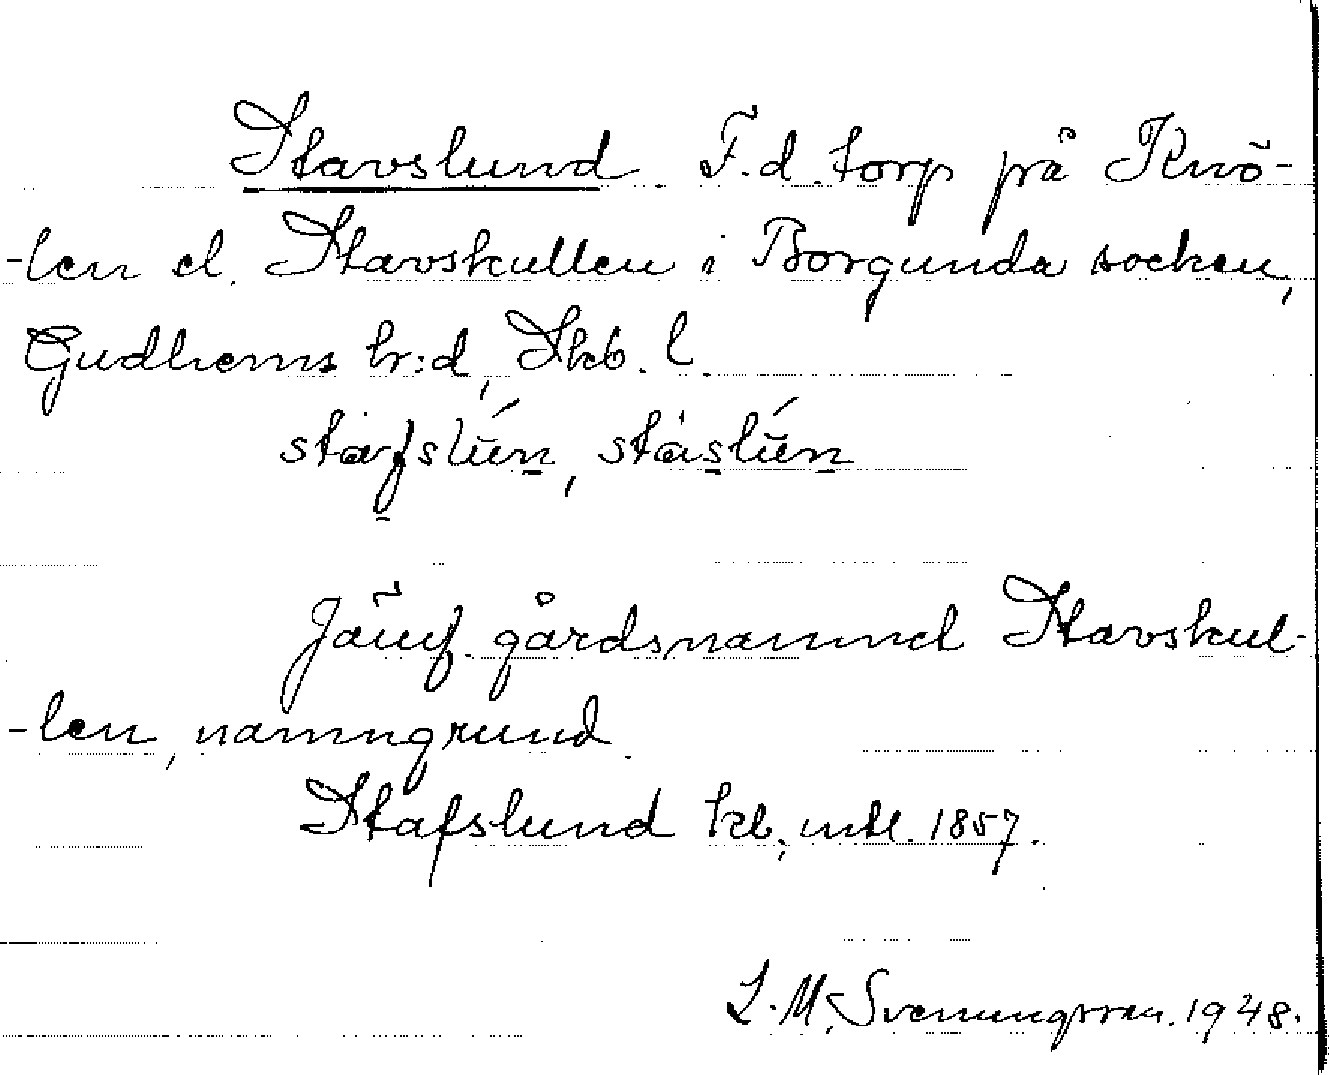 Stavslund F.d. torp på Knö-
-len el. Stavskullen i Borgunda socken,
Gudhems hr:d, Skb. l.
stafslún, stáslún
Jämf. gårdsnamnet Stavskul-
-len, namngrund.
Stafslund kb, mtl. 1857.
L. M. Svenungsson. 1948.